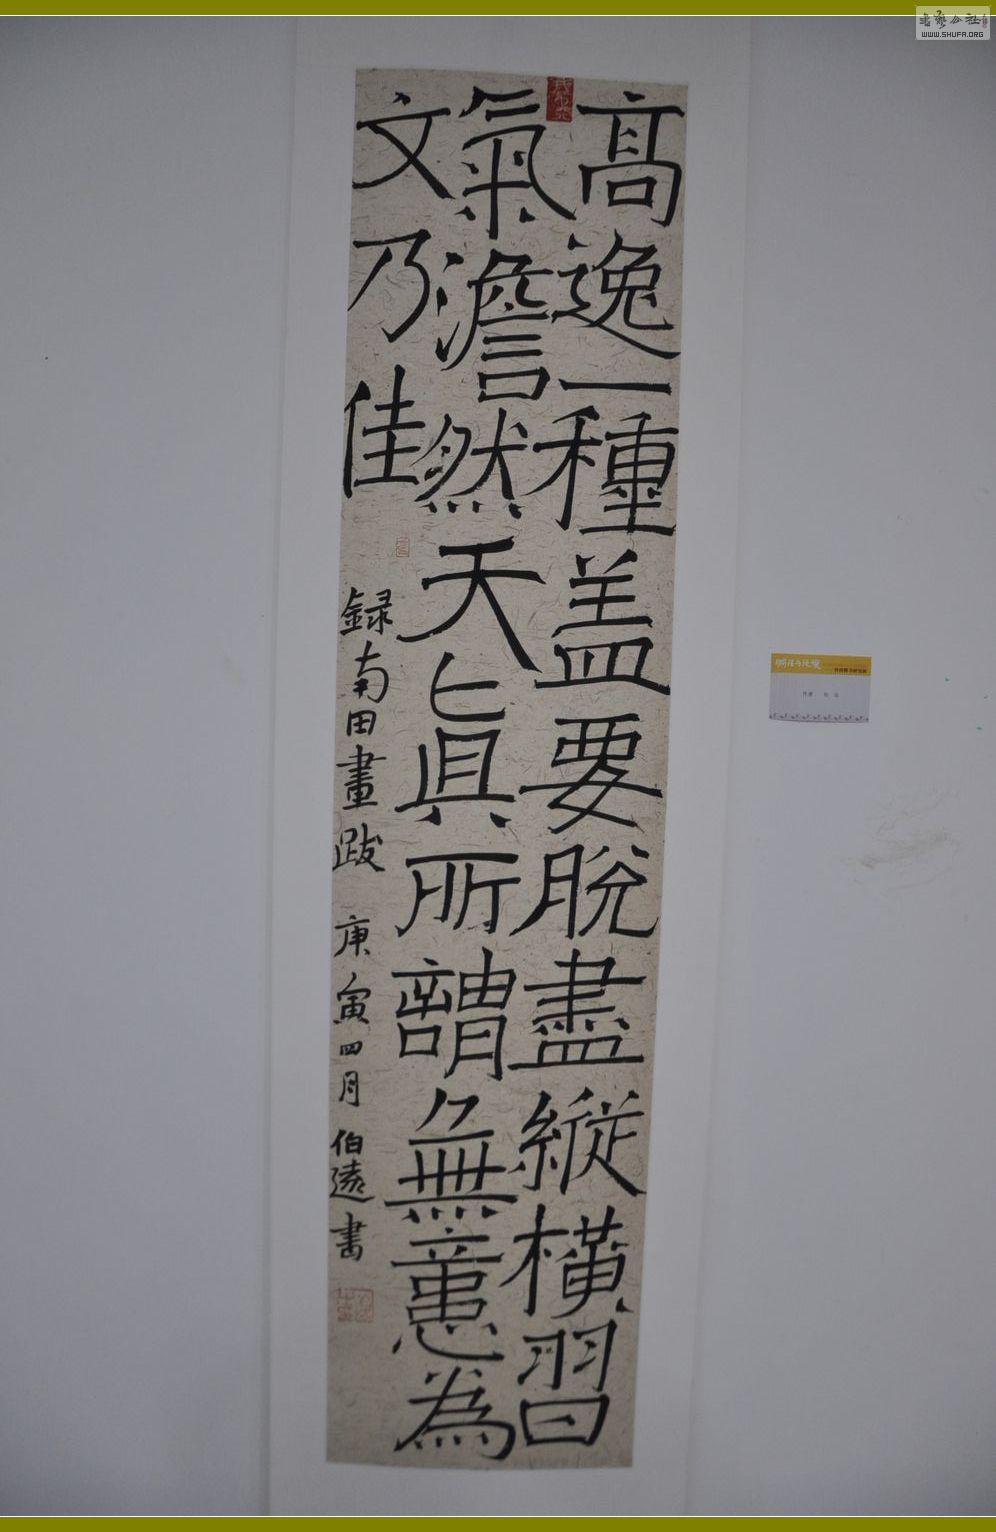 高逸一種盖要脫盡縱橫習
氣澹然天眞所謂無意為
文乃佳
録南田畫跋 庚寅四月 伯遠書
WWW.SHUFA.ORG